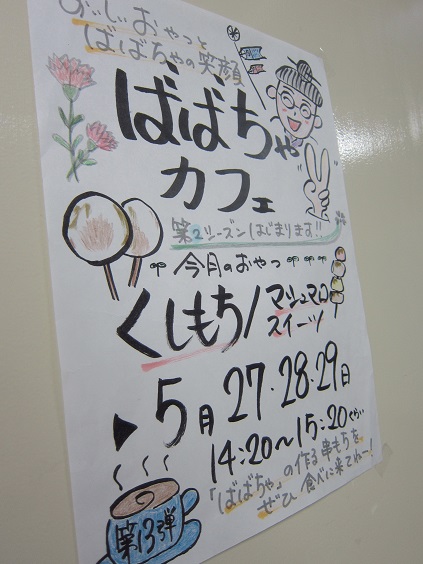 おいしいおやつと
ばばちゃの笑顔
ばばちゃ
カフェ
第2シーズンはじまります!!
今月のおやつ
くしもち/マシュマロ
スイーツ
▶5月27・28・29日
14:20～15:20ぐらい
「ばばちゃ」の作る串もちを
ぜひ食べに来てねー!
第13弾